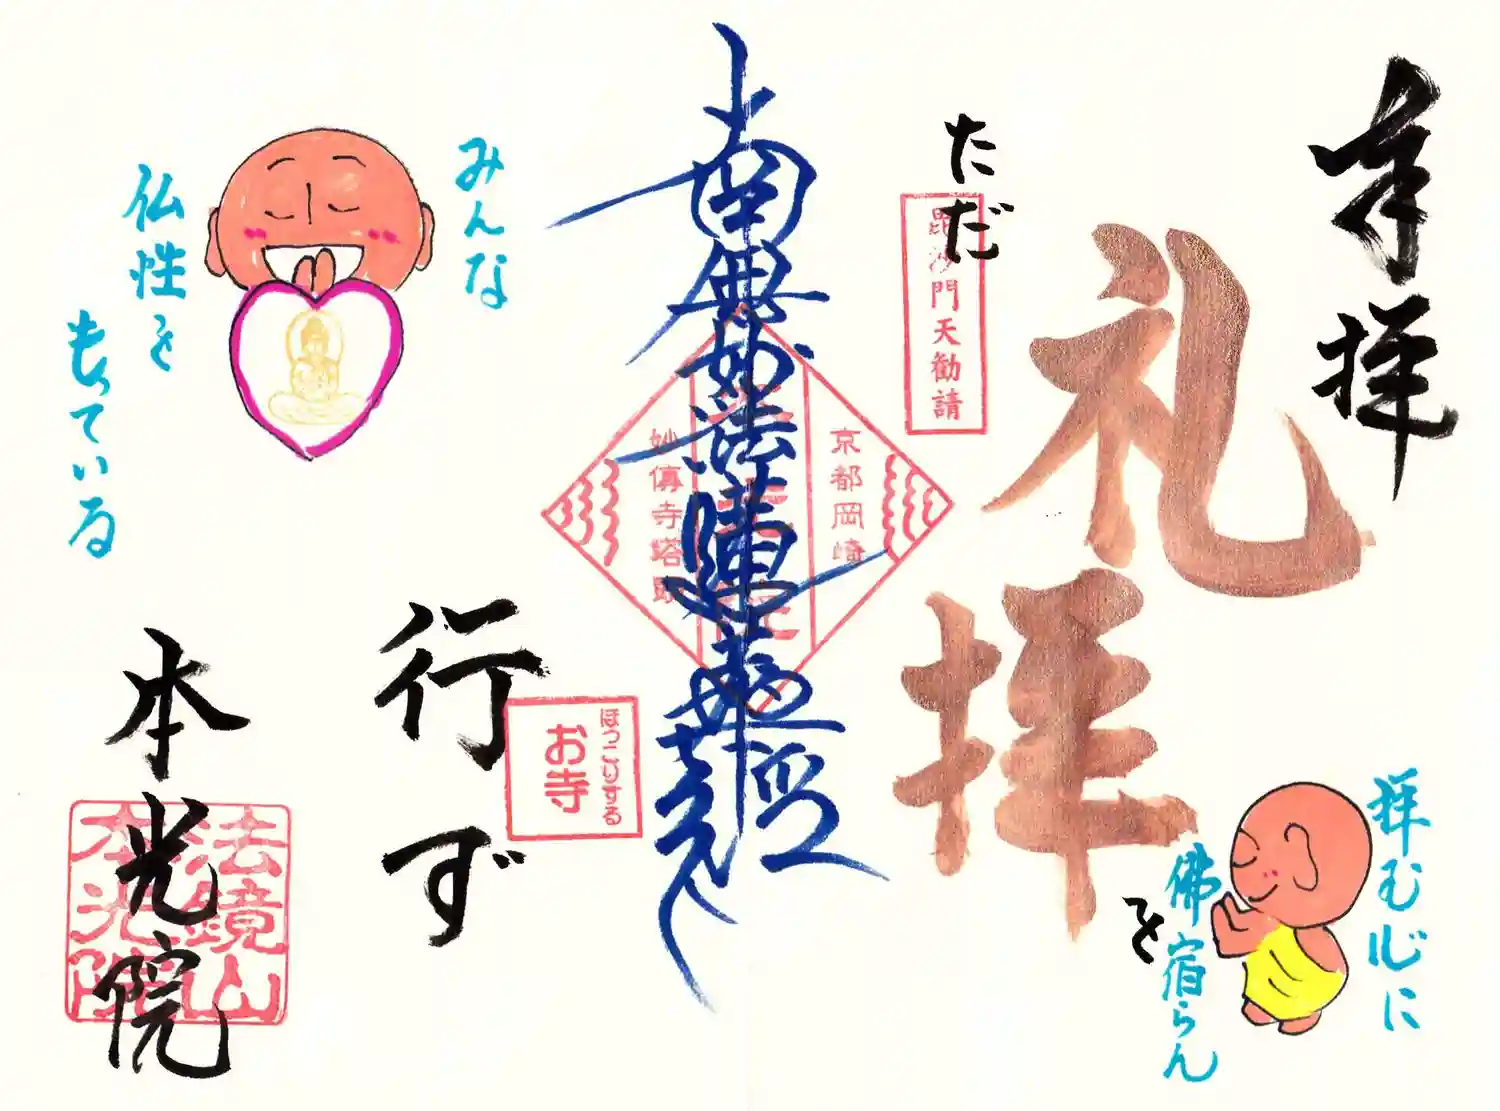 奉拝
ただ
礼拝
を
行ず
拝む心に
佛宿らん
南無妙法蓮華経
毘沙門天勧請
京都岡崎
妙傳寺塔頭
みんな
仏性を
もっている
ほっこりする
お寺
本光院
法鏡山
本光院